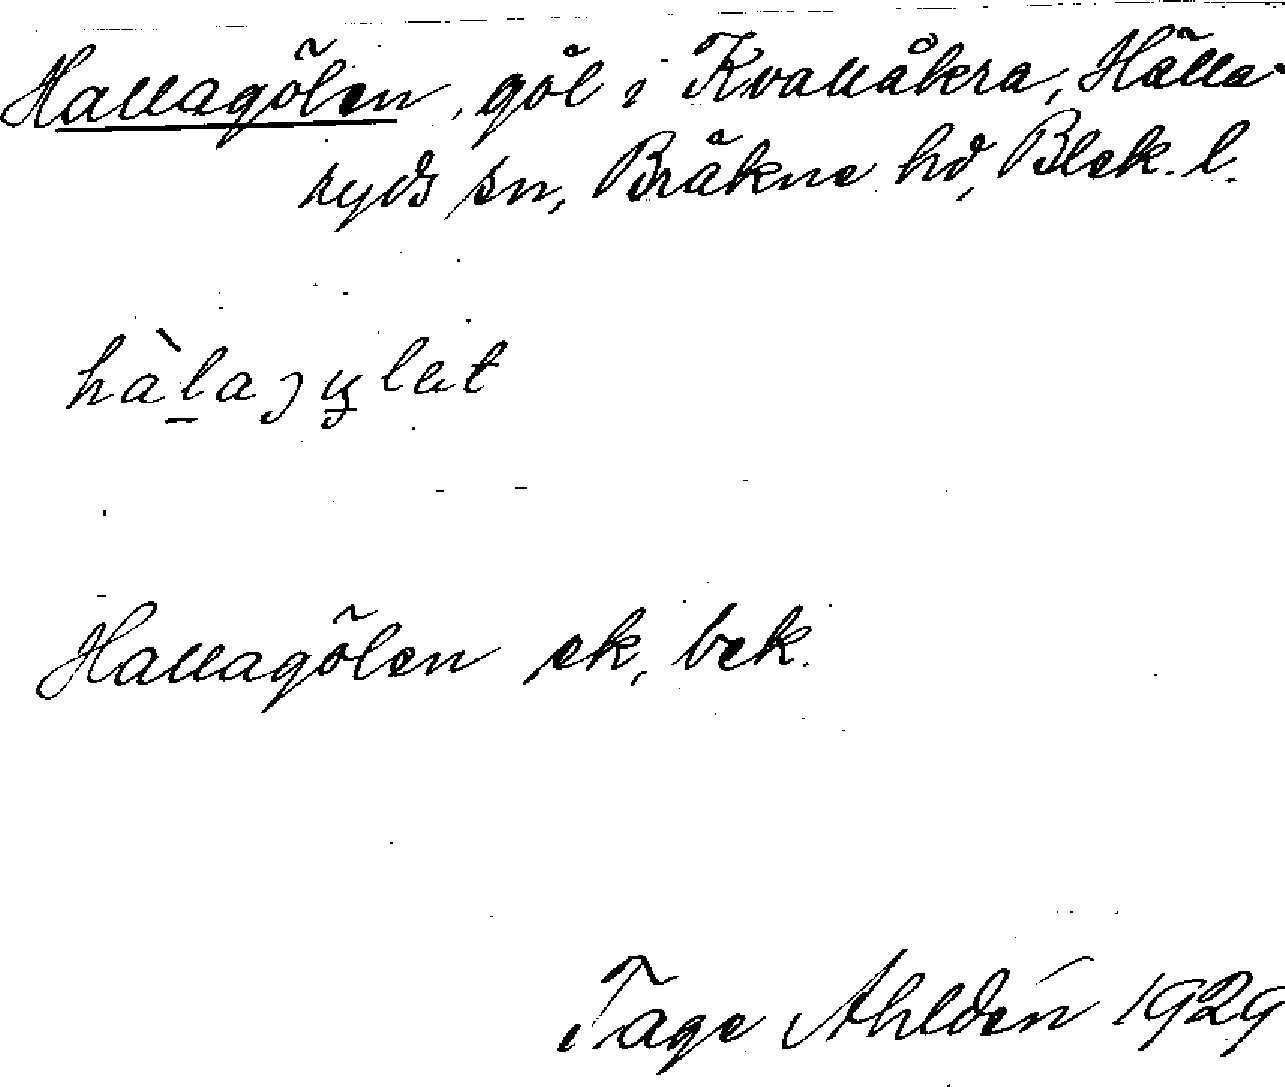 Hallagölen, göl i Kvallåkra, Hälla-
ryds sn, Bräkne hd, Blek. l.
Hallagölen ek, bek.
Tage Ahldén 1929